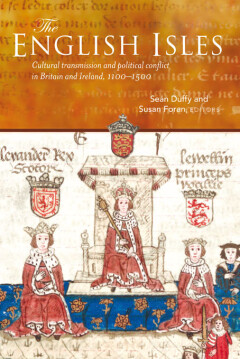 The
ENGLISH ISLES
Cultural transmission and political conflict
in Britain and Ireland, 1100–1500
Seán Duffy and
Susan Foran, EDITORS
Rex
princeps